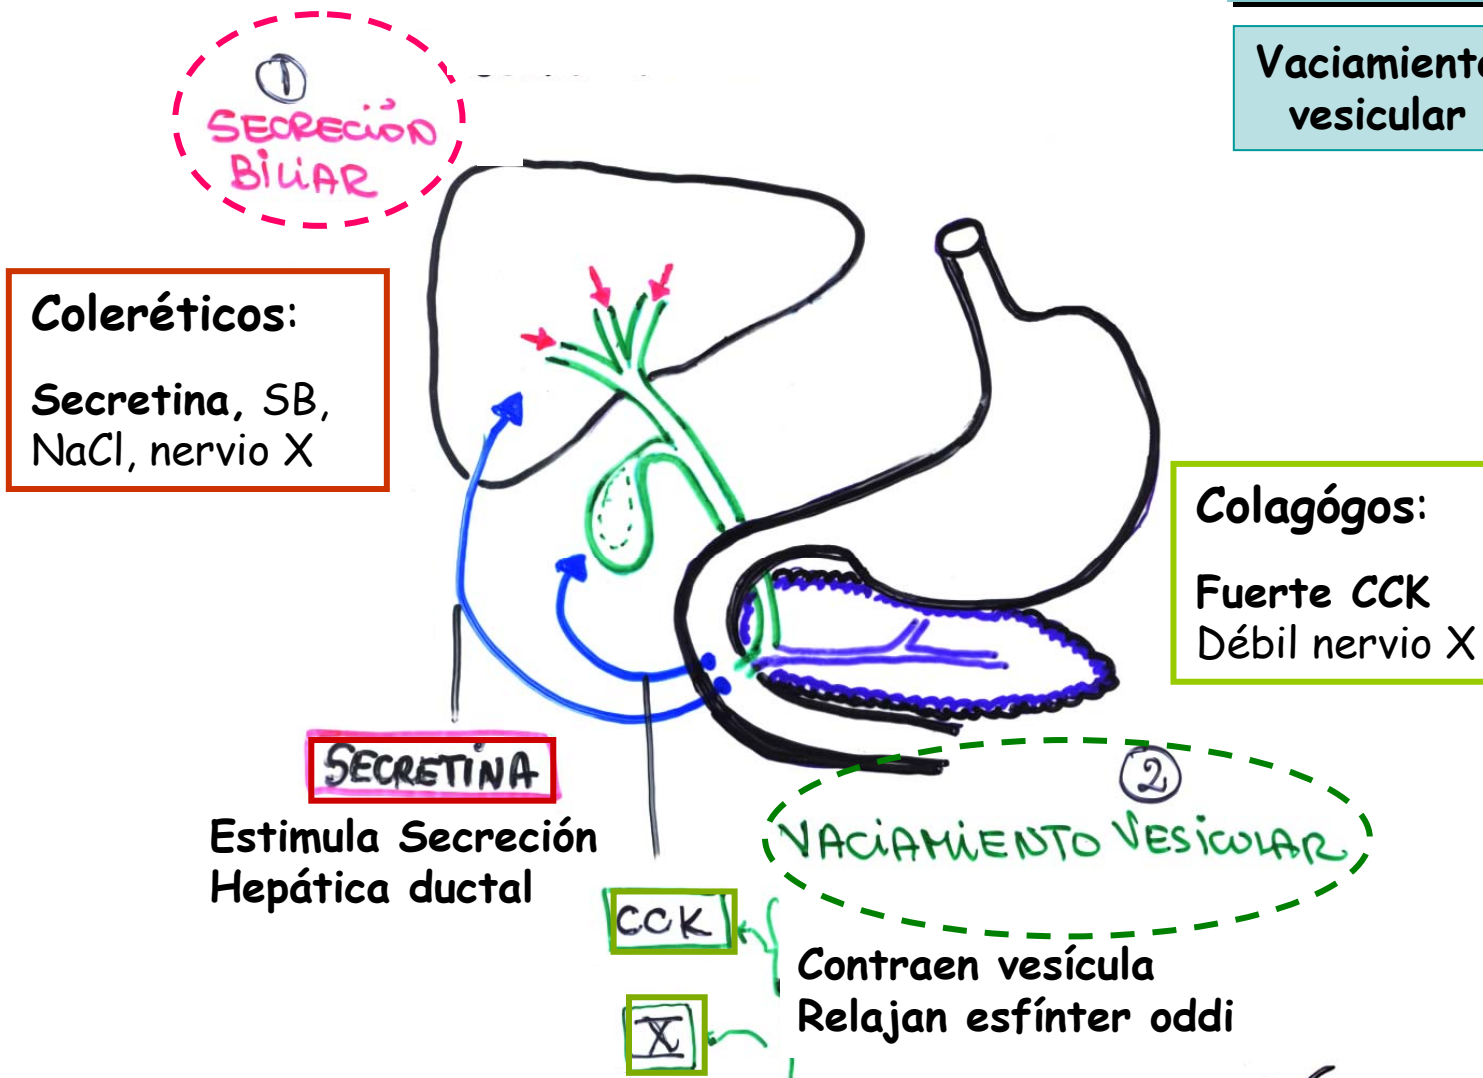 ①
SECRECIÓN
BILIAR
Vaciamiento
vesicular
Coleréticos:
Secretina, SB,
NaCl, nervio X
Colagógos:
Fuerte CCK
Débil nervio X
SECRETINA
Estimula Secreción
Hepática ductal
②
VACIAMIENTO VESICULAR
CCK
Contraen vesícula
Relajan esfínter oddi
X